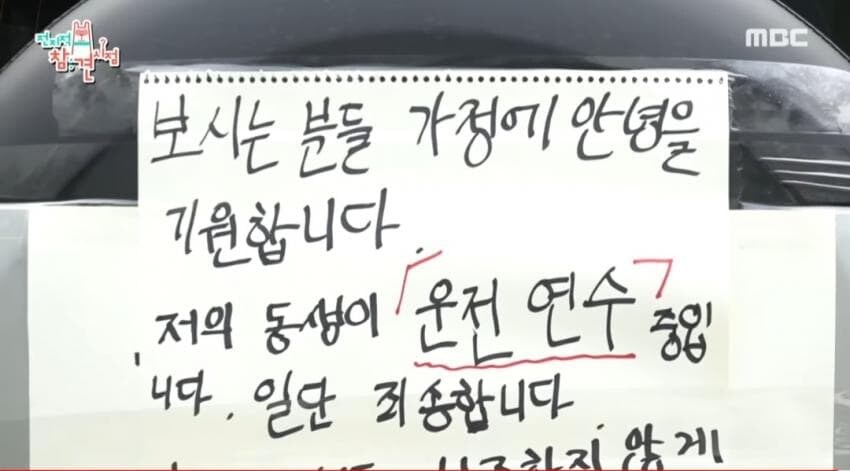 전지적 참견시점
MBC
보시는 분들 가정에 안녕을
기원합니다.
저의 동생이 「운전 연수」 중입
니다. 일단 죄송합니다
않게